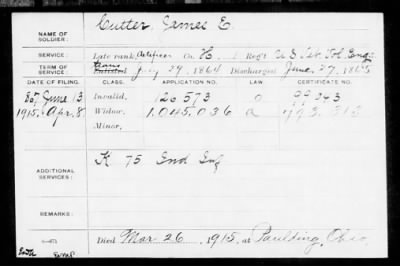 NAME OF SOLDIER: Cutter, James E.
SERVICE: Late rank, Artificer Co. H, 1 Reg't U S Vet. Vol. Eng.
TERM OF SERVICE: trans July 29, 1864 Discharged June 27, 1865
DATE OF FILING. CLASS. APPLICATION NO. LAW. CERTIFICATE NO.
June 13 Invalid, 126573 99343
1915, Apr. 8 Widow, 1,045,036 a 793,313
Minor,
ADDITIONAL SERVICES: K 75 Ind Inf
REMARKS:
Died Mar 26, 1915, at Paulding, Ohio